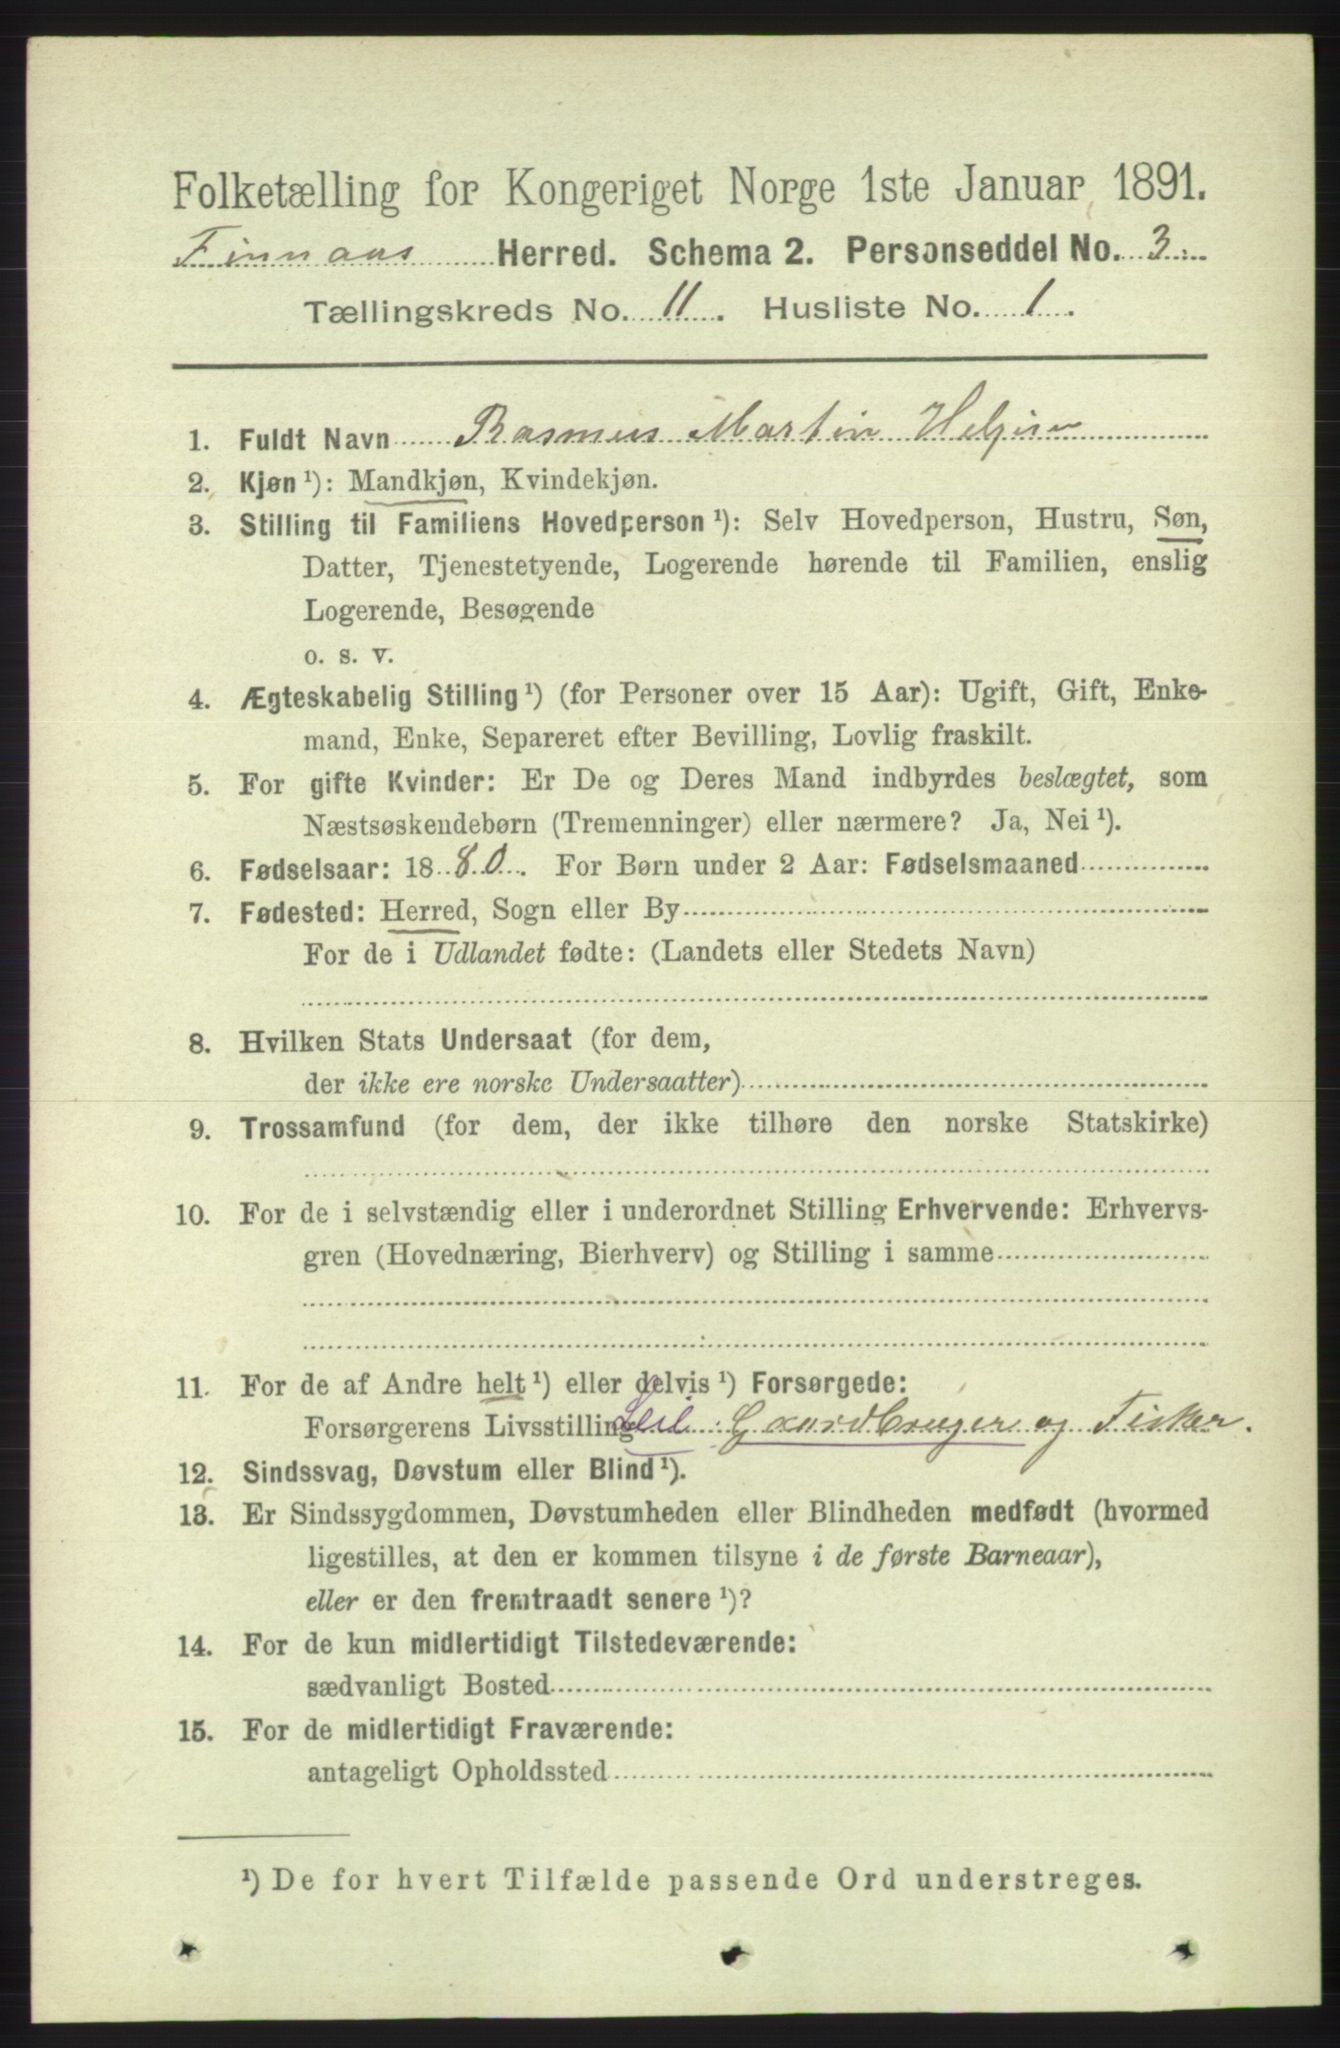 Folketælling for Kongeriget Norge 1ste Januar 1891.
Finnaas Herred. Schema 2. Personseddel No. 3.
Tællingskreds No. 11. Husliste No. 1.
1. Fuldt Navn Rasmus Martin Helgesen
2. Kjøn ¹): Mandkjøn, Kvindekjøn.
3. Stilling til Familiens Hovedperson ¹): Selv Hovedperson, Hustru, Søn,
Datter, Tjenestetyende, Logerende hørende til Familien, enslig
Logerende, Besøgende
o. s. v.
4. Ægteskabelig Stilling ¹) (for Personer over 15 Aar): Ugift, Gift, Enke-
mand, Enke, Separeret efter Bevilling, Lovlig fraskilt.
5. For gifte Kvinder: Er De og Deres Mand indbyrdes beslægtet, som
Næstsøskendebørn (Tremenninger) eller nærmere? Ja, Nei ¹).
6. Fødselsaar: 1880. For Børn under 2 Aar: Fødselsmaaned
7. Fødested: Herred, Sogn eller By
For de i Udlandet fødte: (Landets eller Stedets Navn)
8. Hvilken Stats Undersaat (for dem,
der ikke ere norske Undersaatter)
9. Trossamfund (for dem, der ikke tilhøre den norske Statskirke)
10. For de i selvstændig eller i underordnet Stilling Erhvervende: Erhvervs-
gren (Hovednæring, Bierhverv) og Stilling i samme
11. For de af Andre helt ¹) eller delvis ¹) Forsørgede:
Forsørgerens Livsstilling Gaardbruger og Fisker.
12. Sindssvag, Døvstum eller Blind ¹).
13. Er Sindssygdommen, Døvstumheden eller Blindheden medfødt (hvormed
ligestilles, at den er kommen tilsyne i de første Barneaar),
eller er den fremtraadt senere ¹)?
14. For de kun midlertidigt Tilstedeværende:
sædvanligt Bosted
15. For de midlertidigt Fraværende:
antageligt Opholdssted
¹) De for hvert Tilfælde passende Ord understreges.